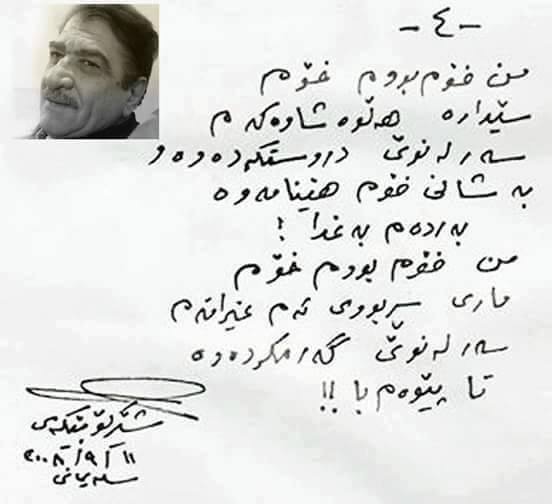 -٤-
من خۆم بووم خۆم
سێدارە هەڵوەشاوەکەم
سەرلەنوێ دروستکردەوە و
بە شانی خۆم هێنامەوە
بەردەم بەغدا !
من خۆم بووم خۆم
ماری سڕبووی ئەم عێراقەم
سەرلەنوێ گەرمکردەوە
تا پێوەم با !!
شێرکۆ بێکەس
١١/٩/٢٠٠٨
سلێمانی